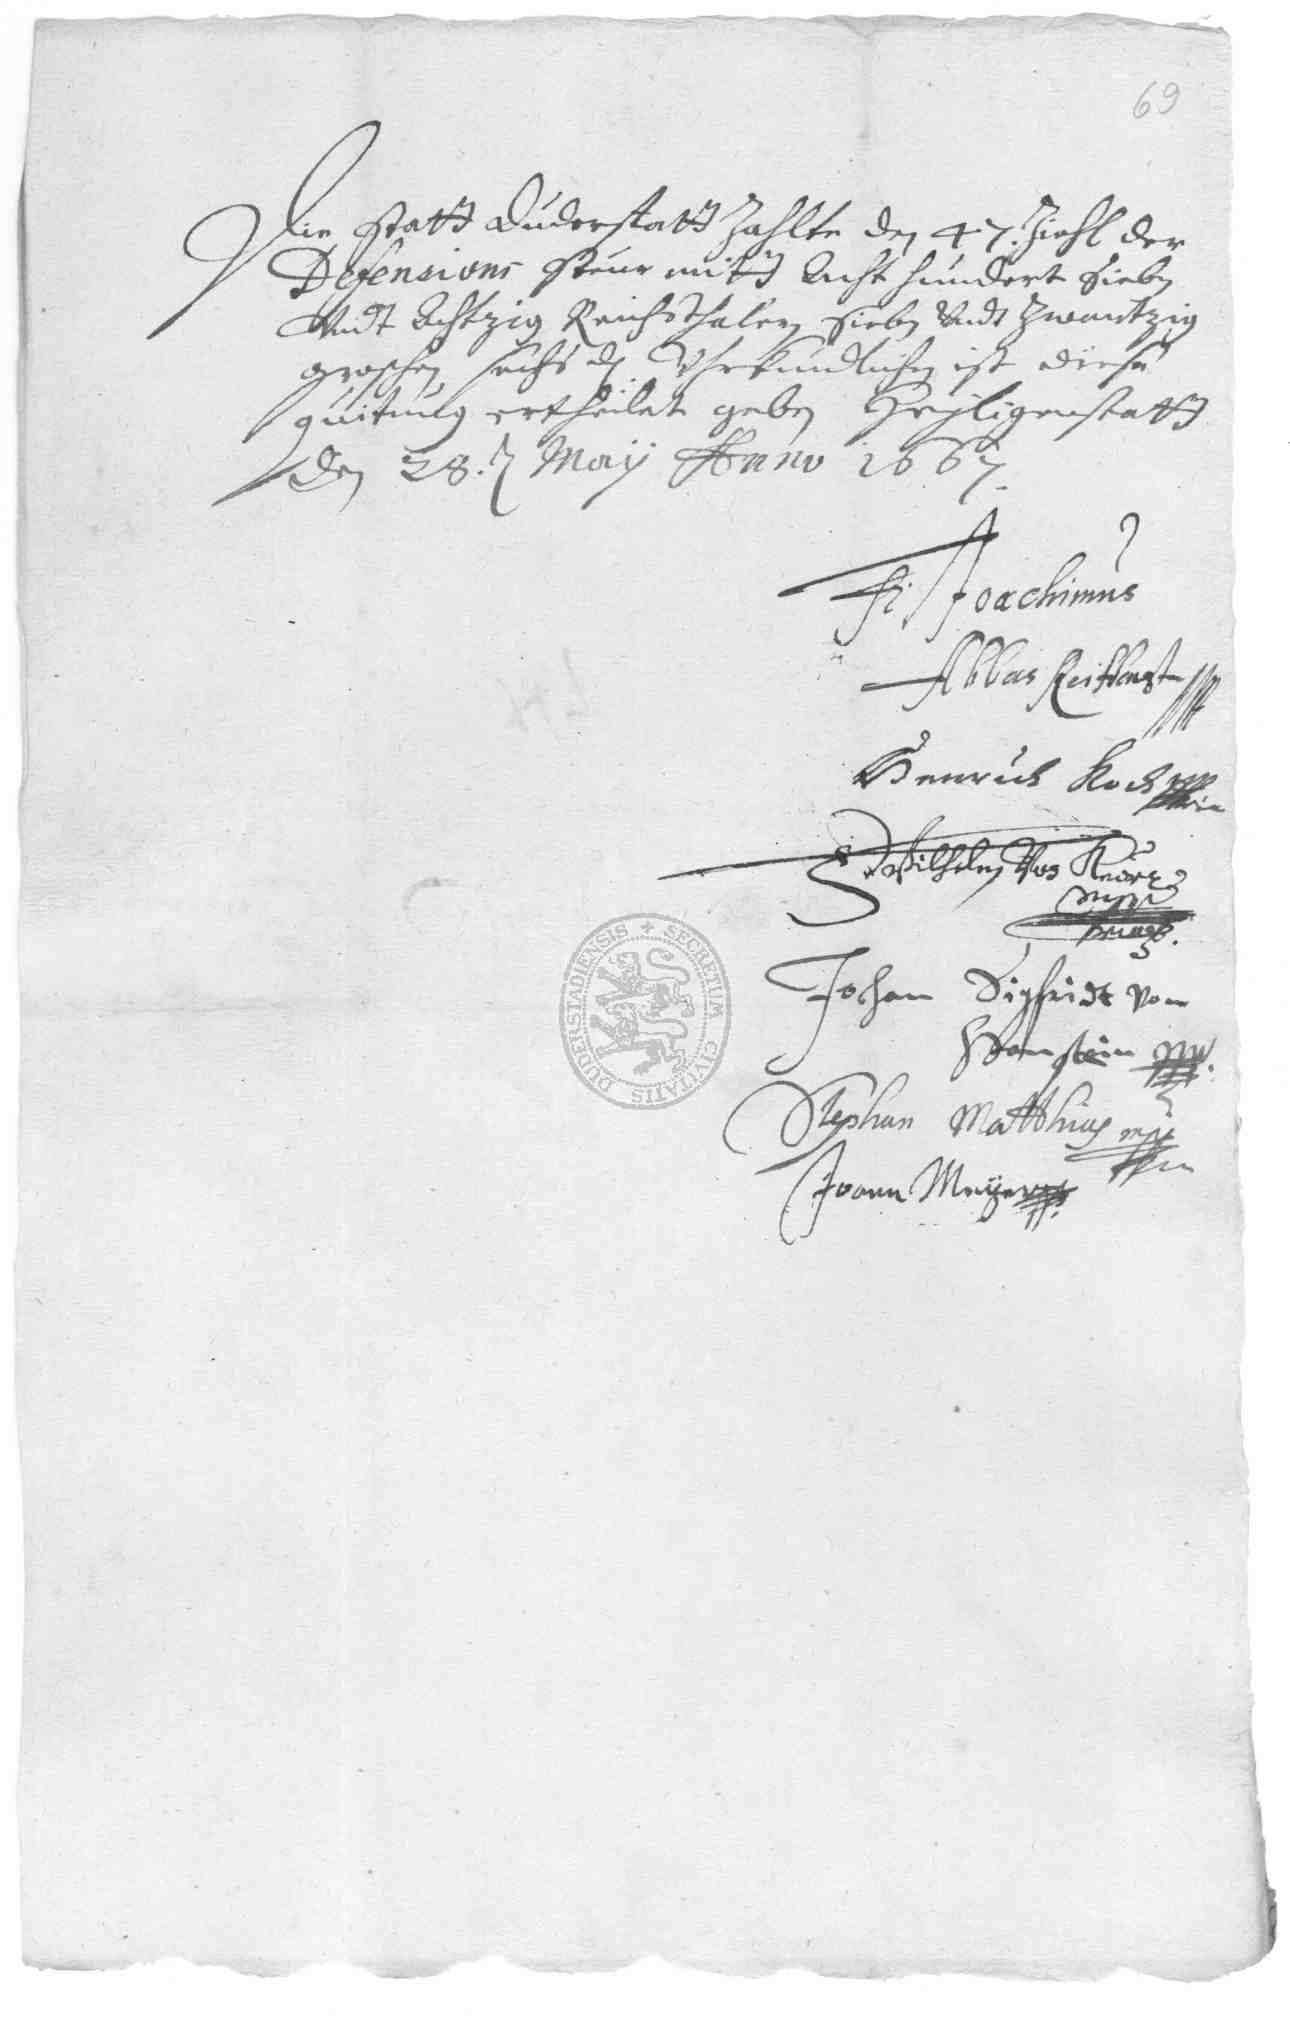 69
Die Statt Duderstatt Zahlte den 47. Ziehl der
Defensions Steur mitt Acht hundert Sieben
Undt Achtzig Reichsthalern Sieben Undt Zwantzig
groschen sechs d Uhrkundlichen ist diese
quitung ertheilet geben Heyligenstatt
den 28. May Anno 1667.
fr. Joachimus
Abbas
Henrich Koch
Wilhelm Von
Johan Sigfridt von
Hanstein mp.
Stephan Matthias mp
Joann Meyer
SECRETUM CIVITATIS DUDERSTADIENSIS